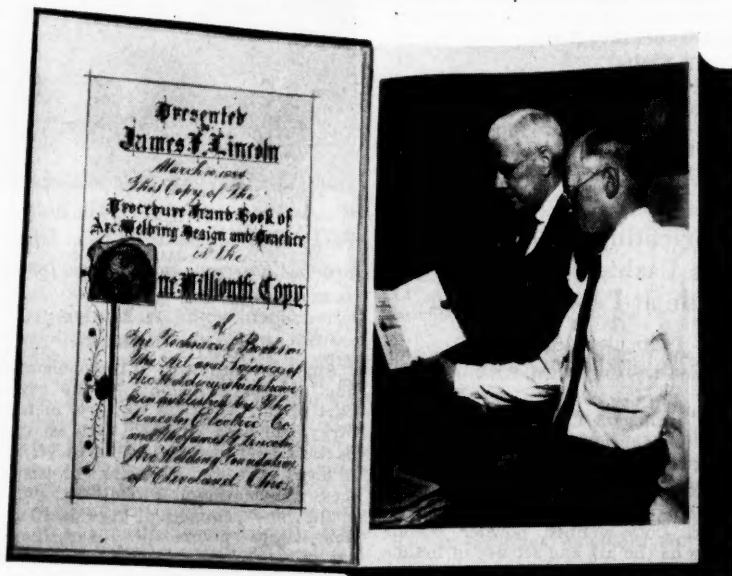 Presented
to
James F. Lincoln
March
This Copy of The
Procedure Hand Book of
Arc Welding Design and Practice
is the
One Millionth Copy
of
The Technical Books on
The Art and Science of
Arc Welding which have
been published by The
Lincoln Electric Co.
and The James F. Lincoln
Arc Welding Foundation
of Cleveland Ohio